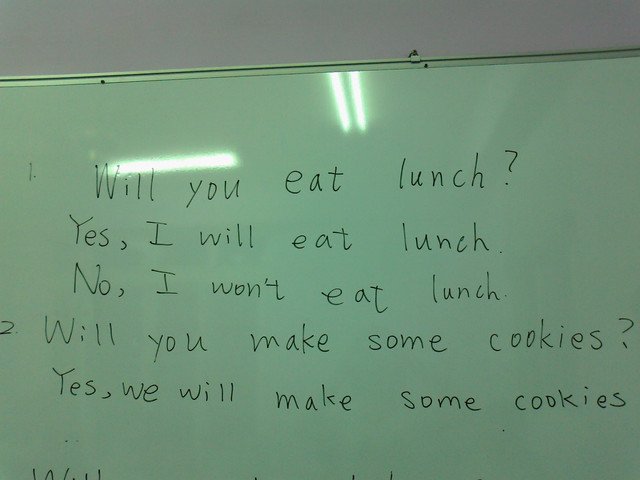 1. Will you eat lunch?
Yes, I will eat lunch.
No, I won't eat lunch.
2. Will you make some cookies?
Yes, we will make some cookies
Will